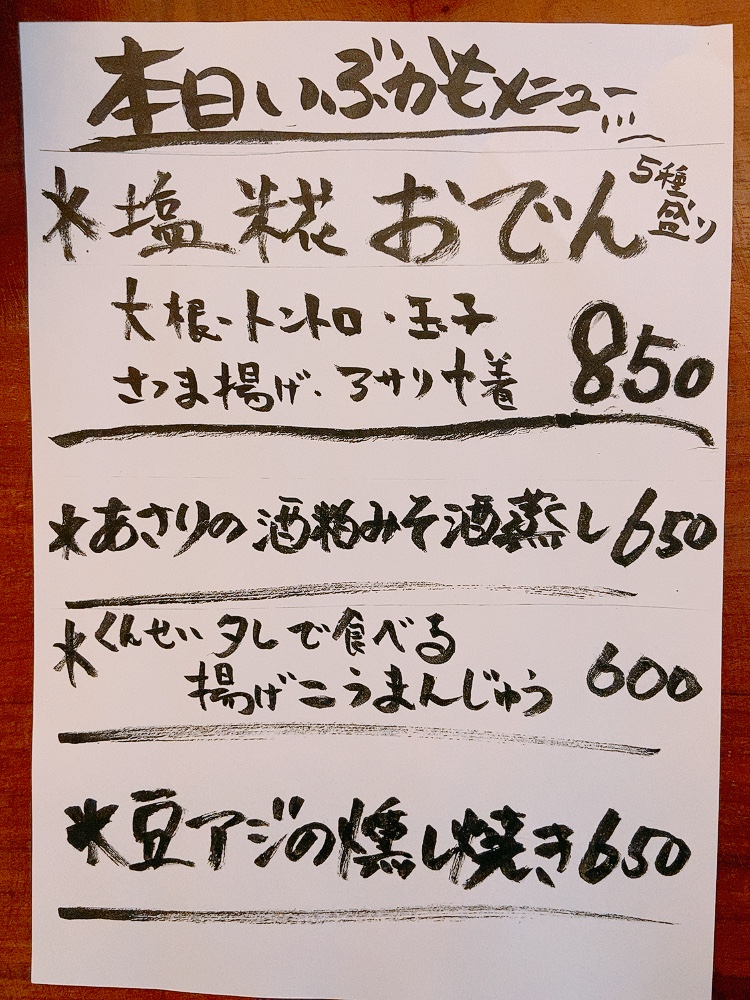 本日いぶかもメニュー
*塩糀おでん 5種盛り
大根・トントロ・玉子
さつま揚げ・アサリ巾着 850
*あさりの酒粕みそ酒蒸し 650
*くんせいタレで食べる
揚げこうまんじゅう 600
*豆アジの燻し焼き 650